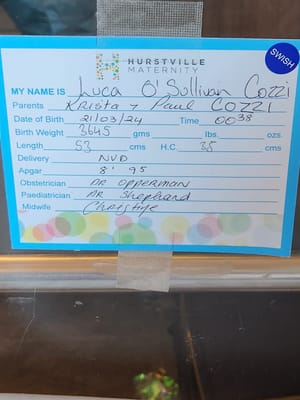 HURSTVILLE
MATERNITY
SWISH
MY NAME IS Luca O'Sullivan Cozzi
Parents Krista + Paul COZZI
Date of Birth 21/03/24 Time 00 38
Birth Weight 3645 gms lbs. ozs.
Length 53 cms H.C. 35 cms
Delivery NVD
Apgar 8' 95
Obstetrician DR OPPERMAN
Paediatrician DR Shephard
Midwife Christine